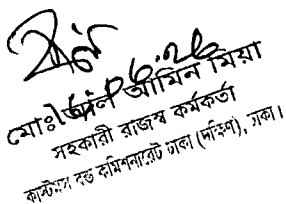 মোঃ আল আমিন মিয়া
সহকারী রাজস্ব কর্মকর্তা
কাস্টমস বন্ড কমিশনারেট ঢাকা (দক্ষিণ), ঢাকা।